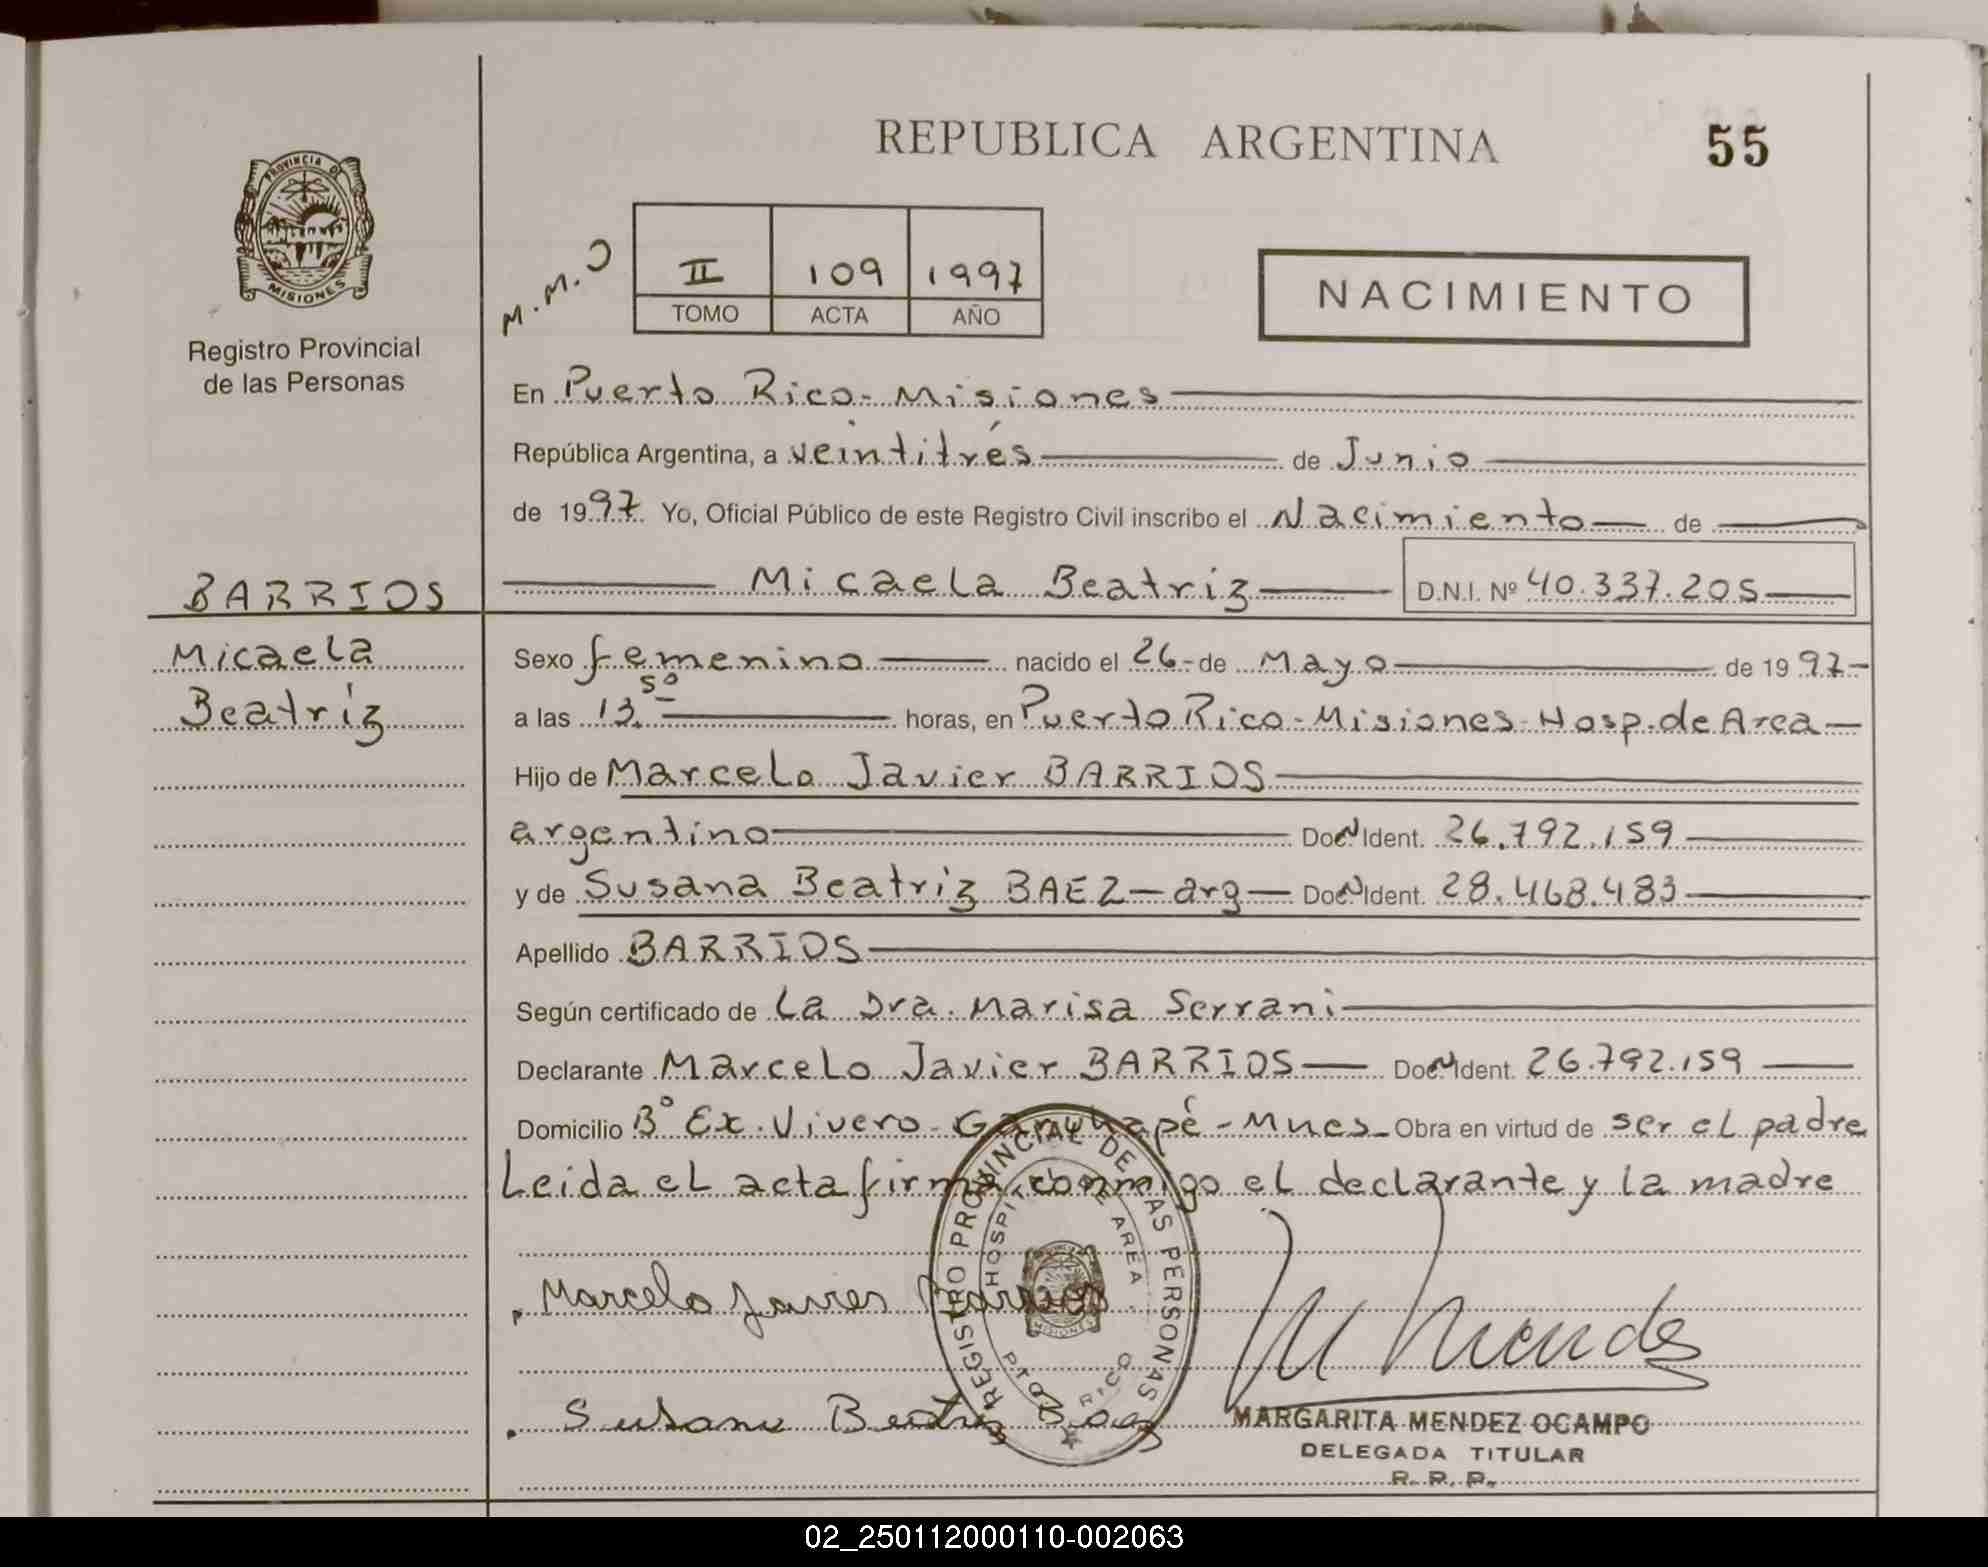 REPUBLICA ARGENTINA
55
PROVINCIA DE
MISIONES
Registro Provincial
de las Personas
M.M.O
II 109 1997
TOMO ACTA AÑO
NACIMIENTO
En Puerto Rico - Misiones
República Argentina, a veintitrés de Junio
de 1997. Yo, Oficial Público de este Registro Civil inscribo el Nacimiento de
BARRIOS
Micaela Beatriz D.N.I. Nº 40.337.205
Micaela
Beatriz
Sexo femenino nacido el 26 de Mayo de 1997
a las 13.50 horas, en Puerto Rico - Misiones - Hosp. de Area
Hijo de Marcelo Javier BARRIOS
argentino Doc. Ident. 26.792.159
y de Susana Beatriz BAEZ - arg Doc. Ident. 28.468.483
Apellido BARRIOS
Según certificado de La Dra. Marisa Serrani
Declarante Marcelo Javier BARRIOS Doc. Ident. 26.792.159
Domicilio Bº Ex. Vivero - Garuhapé - Mnes Obra en virtud de ser el padre
Leida el acta firma conmigo el declarante y la madre
Marcelo Javier Barrios
Susana Beatriz Baez
REGISTRO PROVINCIAL DE LAS PERSONAS
HOSPITAL DE AREA
MISIONES
PTO. RICO
M Mendes
MARGARITA MENDEZ OCAMPO
DELEGADA TITULAR
R. P. P.
02_250112000110-002063